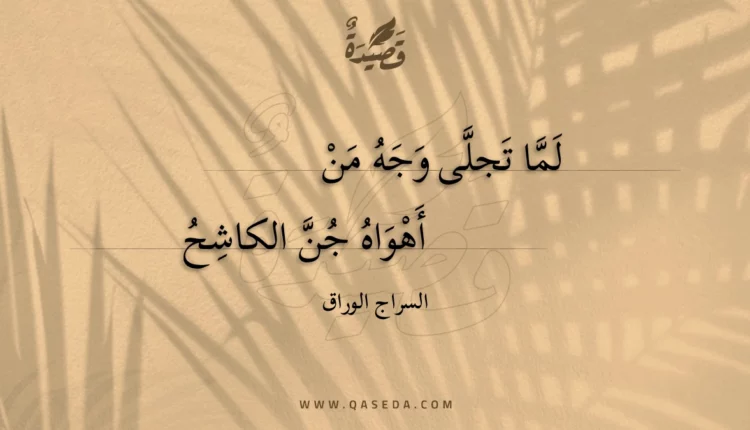 قَصِيْدَةٌ
لَمَّا تَجلَّى وَجَهُ مَنْ
أَهْوَاهُ جُنَّ الكاشِحُ
السراج الوراق
WWW.QASEDA.COM